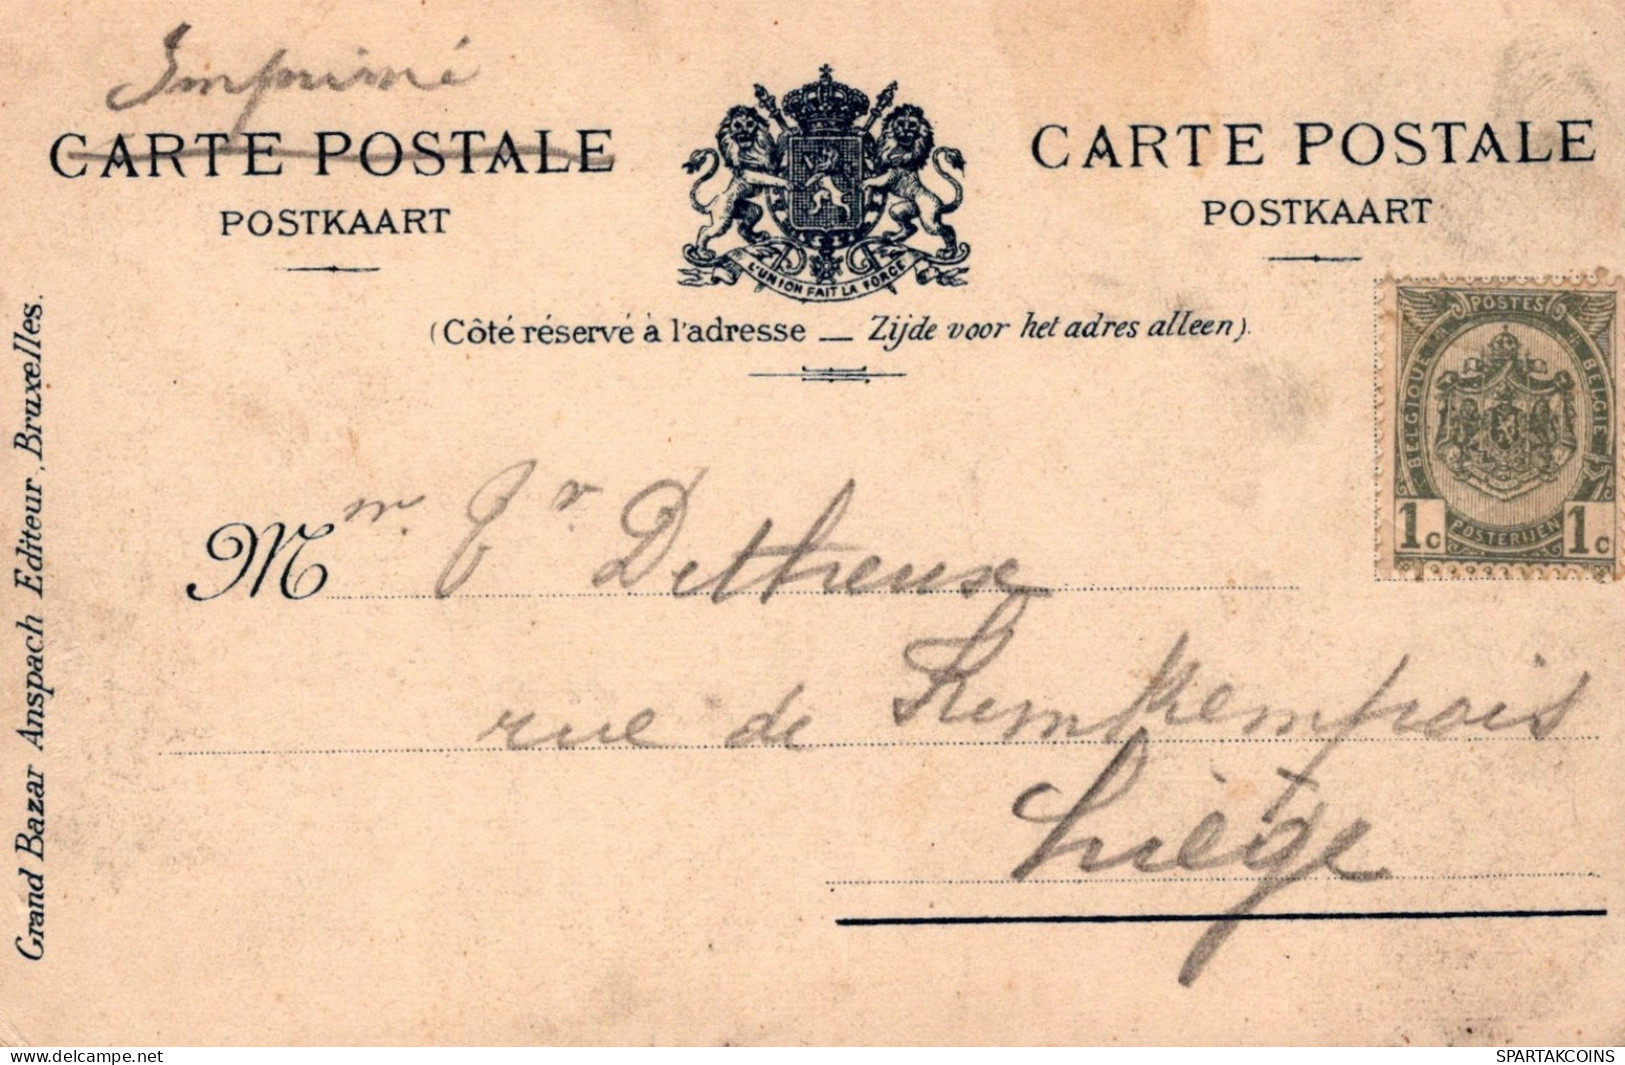 Imprimé
CARTE POSTALE
POSTKAART
L'UNION FAIT LA FORCE
CARTE POSTALE
POSTKAART
(Côté réservé à l'adresse — Zijde voor het adres alleen).
POSTES
BELGIQUE
BELGIE
1c POSTERIJEN 1c
Mm. Detheux
rue de Kemkempois
Liège
Grand Bazar Anspach Editeur, Bruxelles.
posted on www.delcampe.net
SPARTAKCOINS